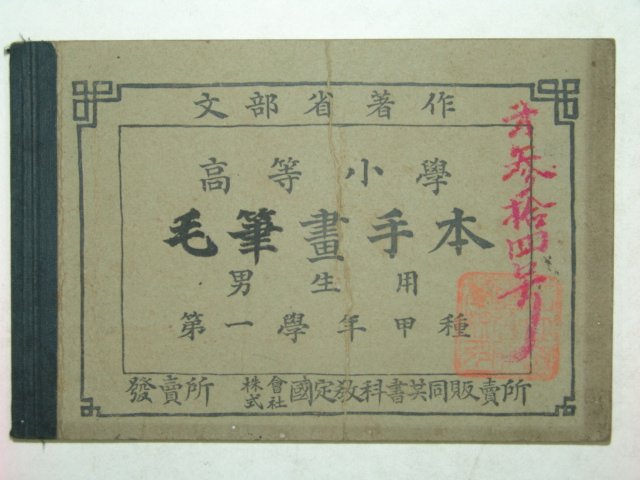 文部省著作
高等小學
毛筆畫手本
男生用
第一學年甲種
發賣所 株式會社 國定敎科書共同販賣所
第參拾四号